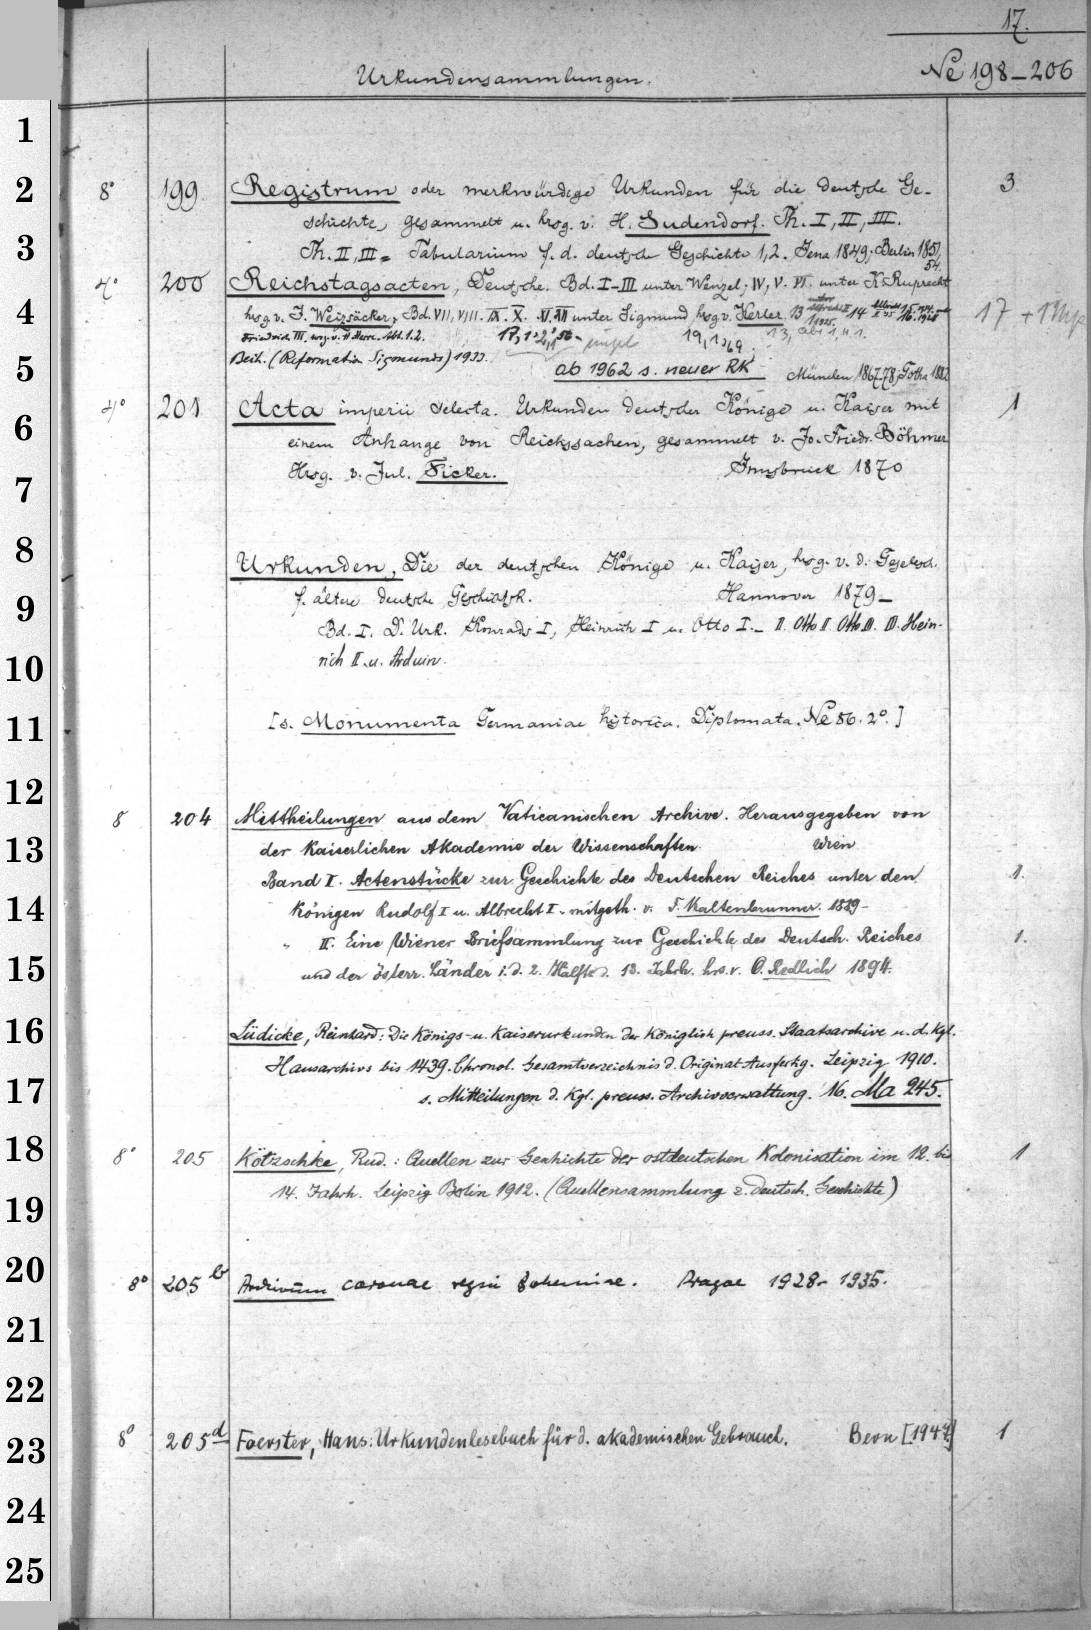 17.
Urkundensammlungen. Ne 198–206
1
2 8° 199 Registrum oder merkwürdige Urkunden für die deutsche Ge- 3
schichte, gesammelt u. hrsg. v. H. Sudendorf. Th. I, II, III.
3 Th. II, III = Tabularium f. d. deutsche Geschichte 1,2. Jena 1849; Berlin 1851,
54.
4° 200 Reichstagsacten, Deutsche. Bd. I–III unter Wenzel; IV, V. VI. unter K. Ruprecht
4 hrsg v. J. Weizsäcker, Bd. VII, VIII. IX. X. XI, XII unter Sigmund hrsg v. Kerler. 13 14 17 + 1
Friedrich III. hrsg. v. H. Herre. Abt. 1.2. 19,1,69.
5 Beih. (Reformation Sigmunds) 1933. ab 1962 s. neuer RK München 1867-78; Gotha 1882
4° 201 Acta imperii selecta. Urkunden deutscher Könige u. Kaiser mit 1
6 einem Anhange von Reichssachen, gesammelt v. Jo. Friedr. Böhmer
7 Hrsg. v. Jul. Ficker. Innsbruck 1870
8 Urkunden, Die der deutschen Könige u. Kaiser, hrsg. v. d. Gesellsch.
9 f. ältere deutsche Geschichtsk. Hannover 1879–
Bd. I. D. Urk. Konrads I, Heinrich I u. Otto I. – II. Otto II. Otto III. III. Hein-
10 rich II. u. Arduin.
11 [s. Monumenta Germaniae historica. Diplomata. Ne 56. 2°.]
12 8 204 Mittheilungen aus dem Vaticanischen Archive. Herausgegeben von
13 der Kaiserlichen Akademie der Wissenschaften. Wien
Band I. Actenstücke zur Geschichte des Deutschen Reiches unter den 1.
14 Königen Rudolf I u. Albrecht I. mitgeth. v. F. Kaltenbrunner. 1889–
" II. Eine Wiener Briefsammlung zur Geschichte des Deutsch. Reiches 1.
15 und der österr. Länder i. d. 2. Hälfte d. 13. Jahrh. hrs. v. O. Redlich 1894.
16 Lüdicke, Reinhard: Die Königs- u. Kaiserurkunden der Königlich preuss. Staatsarchive u. d. Kgl.
Hausarchivs bis 1439. Chronol. Gesamtverzeichnis d. Original Ausfertig. Leipzig 1910.
17 s. Mitteilungen d. Kgl. preuss. Archivverwaltung. 16. Ma 245.
18 8° 205 Kötzschke, Rud.: Quellen zur Geschichte der ostdeutschen Kolonisation im 12. bis 1
14. Jahrh. Leipzig Berlin 1912. (Quellensammlung z. deutsch. Geschichte)
19
20 8° 205 b Archivum coronae regni Bohemiae. Pragae 1928 - 1935.
21
22
23 8° 205 d Foerster, Hans: Urkundenlesebuch für d. akademischen Gebrauch. Bern [1947] 1
24
25